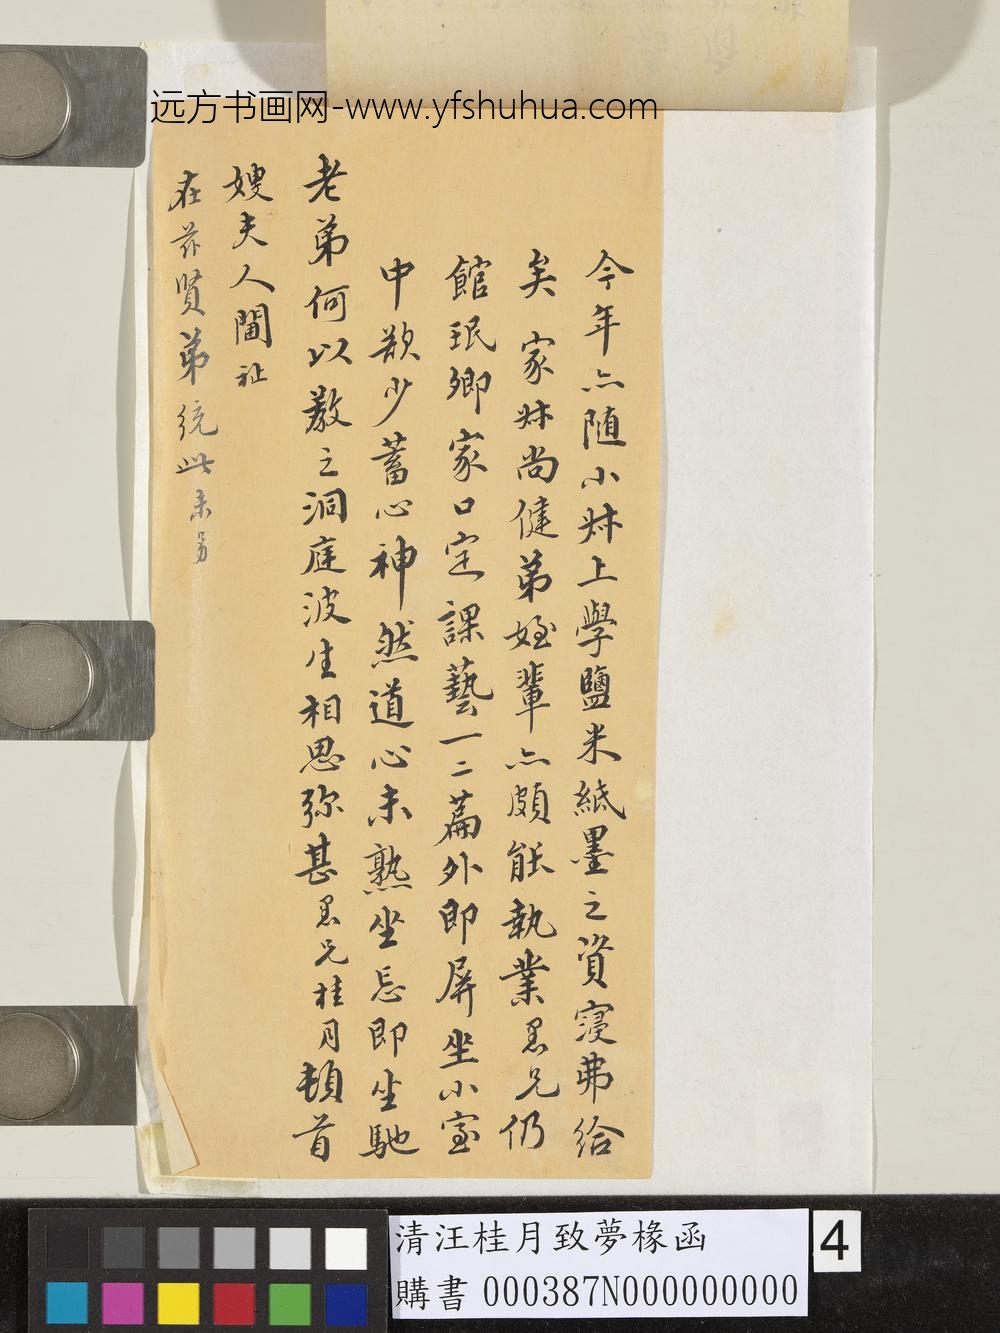 远方书画网-www.yfshuhua.com
今年亦随小𡬶上學鹽米紙墨之資寖弗給
矣家𡬶尚健弟姪輩亦頗能執業愚兄仍
館珉卿家口定課藝一二篇外即屏坐小室
中欲少蓄心神然道心未熟坐忘即坐馳
老弟何以教之洞庭波生相思弥甚愚兄桂月頓首
嫂夫人閫祉
在茲賢弟統此未另
清汪桂月致夢椽函
購書 000387N000000000
4